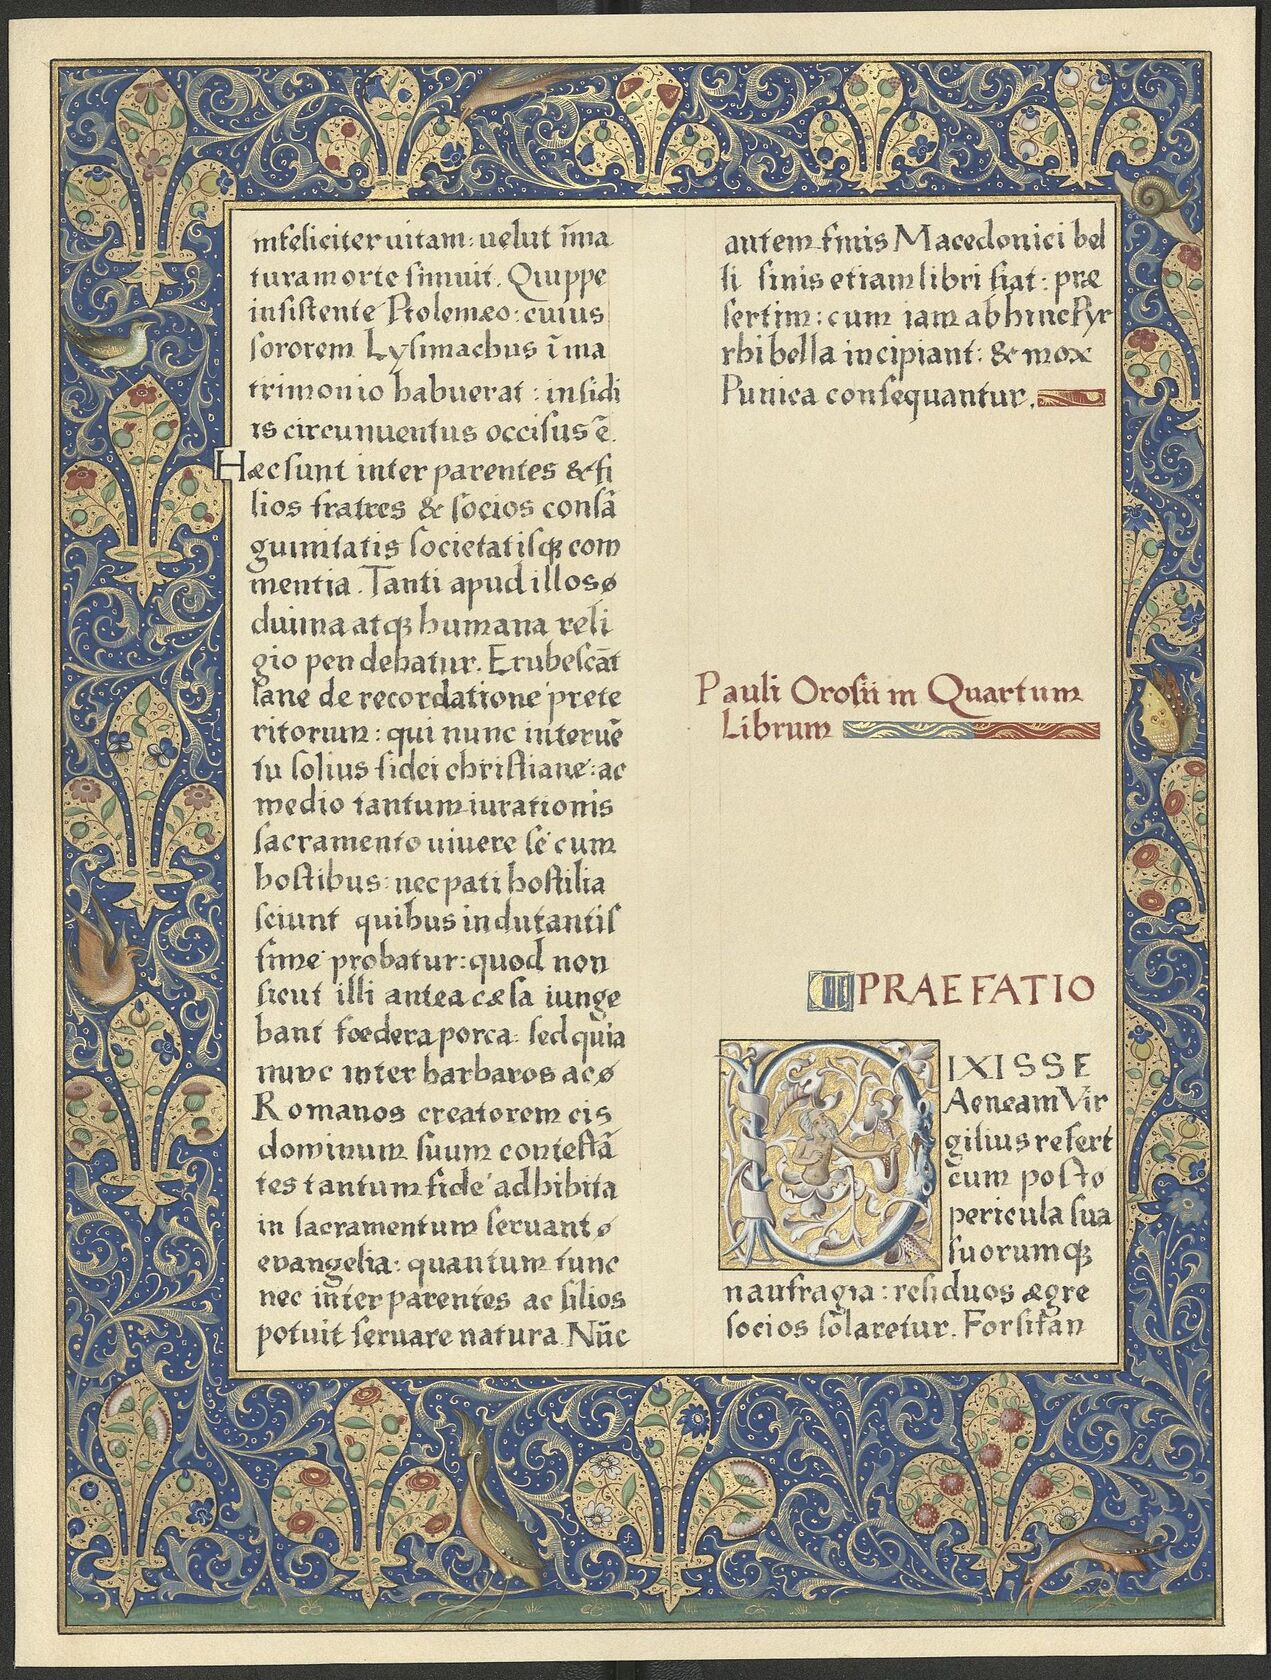 infeliciter uitam: uelut ĩma
tura morte finiuit. Quippe
insistente Ptolemæo: cuius
sororem Lysimachus ĩ ma
trimonio habuerat: insidi
is circunuentus occisus ẽ.
Hæc sunt inter parentes & fi
lios fratres & socios consã
guinitatis societatisqꝫ com
mentia. Tanti apud illos
diuina atqꝫ humana reli
gio pendebatur. Erubescãt
sane de recordatione prete
ritorum: qui nunc interuẽ
tu solius fidei christiane: ac
medio tantum iurationis
sacramento uiuere se cum
hostibus: nec pati hostilia
sciunt quibus indutantis
sime probatur: quod non
sicut illi antea cæsa iunge
bant foedera porca: sed quia
nunc inter barbaros ac
Romanos creatorem eis
dominum suum contestã
tes tantum fidẽ adhibita
in sacramentum seruant
evangelia: quantum tunc
nec inter parentes ac filios
potuit seruare natura. Nũc
autem finis Macedonici bel
li finis etiam libri fiat: præ
sertim: cum iam ab hinc Pyr
rhi bella incipiant: & mox
Punica consequantur.
Pauli Orosii in Quartum
Librum
PRAEFATIO
DIXISSE
Aeneam Vir
gilius refert
cum post
pericula sua
suorumqꝫ
naufragia: residuos ægre
socios sõlaretur. Forsitan